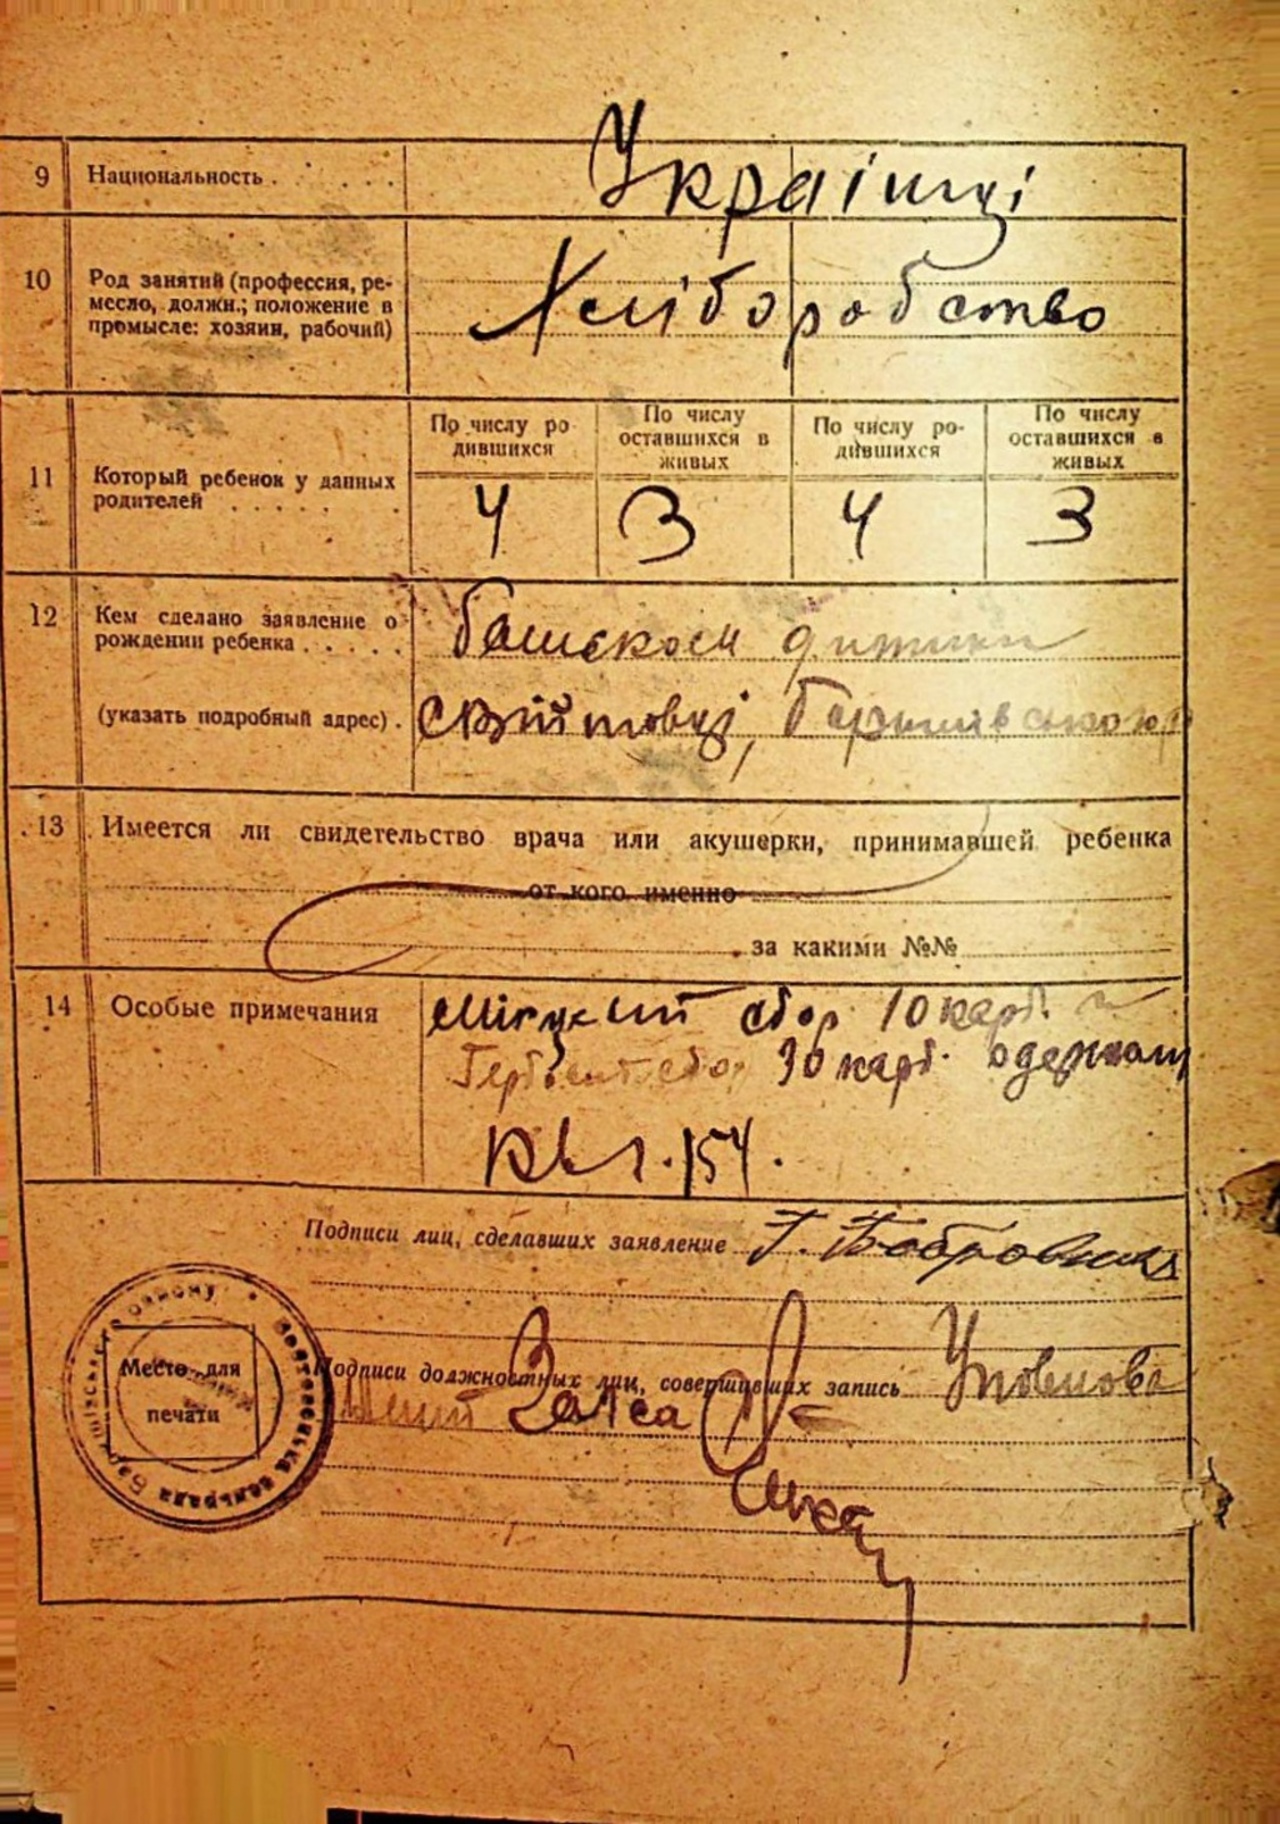 9 Национальность . . . . . . Українці
10 Род занятий (профессия, ре-
месло, должн.; положение в
промысле: хозяин, рабочий)
Хліборобство
По числу ро-
дившихся
По числу
оставшихся в
живых
По числу ро-
дившихся
По числу
оставшихся в
живых
11 Который ребенок у данных
родителей . . . . . .
4 3 4 3
12 Кем сделано заявление о
рождении ребенка . . . . .
батьком дитини
(указать подробный адрес) .
13 Имеется ли свидетельство врача или акушерки, принимавшей ребенка
от кого именно
за какими №№
14 Особые примечания
Місцевий збор 10 карб.
Гербовий збор 30 карб. одержано
Кв 154.
Подписи лиц, сделавших заявление Г. Бобровник
Подписи должностных лиц, совершивших запись Уповнова
жений Загса
Место для
печати